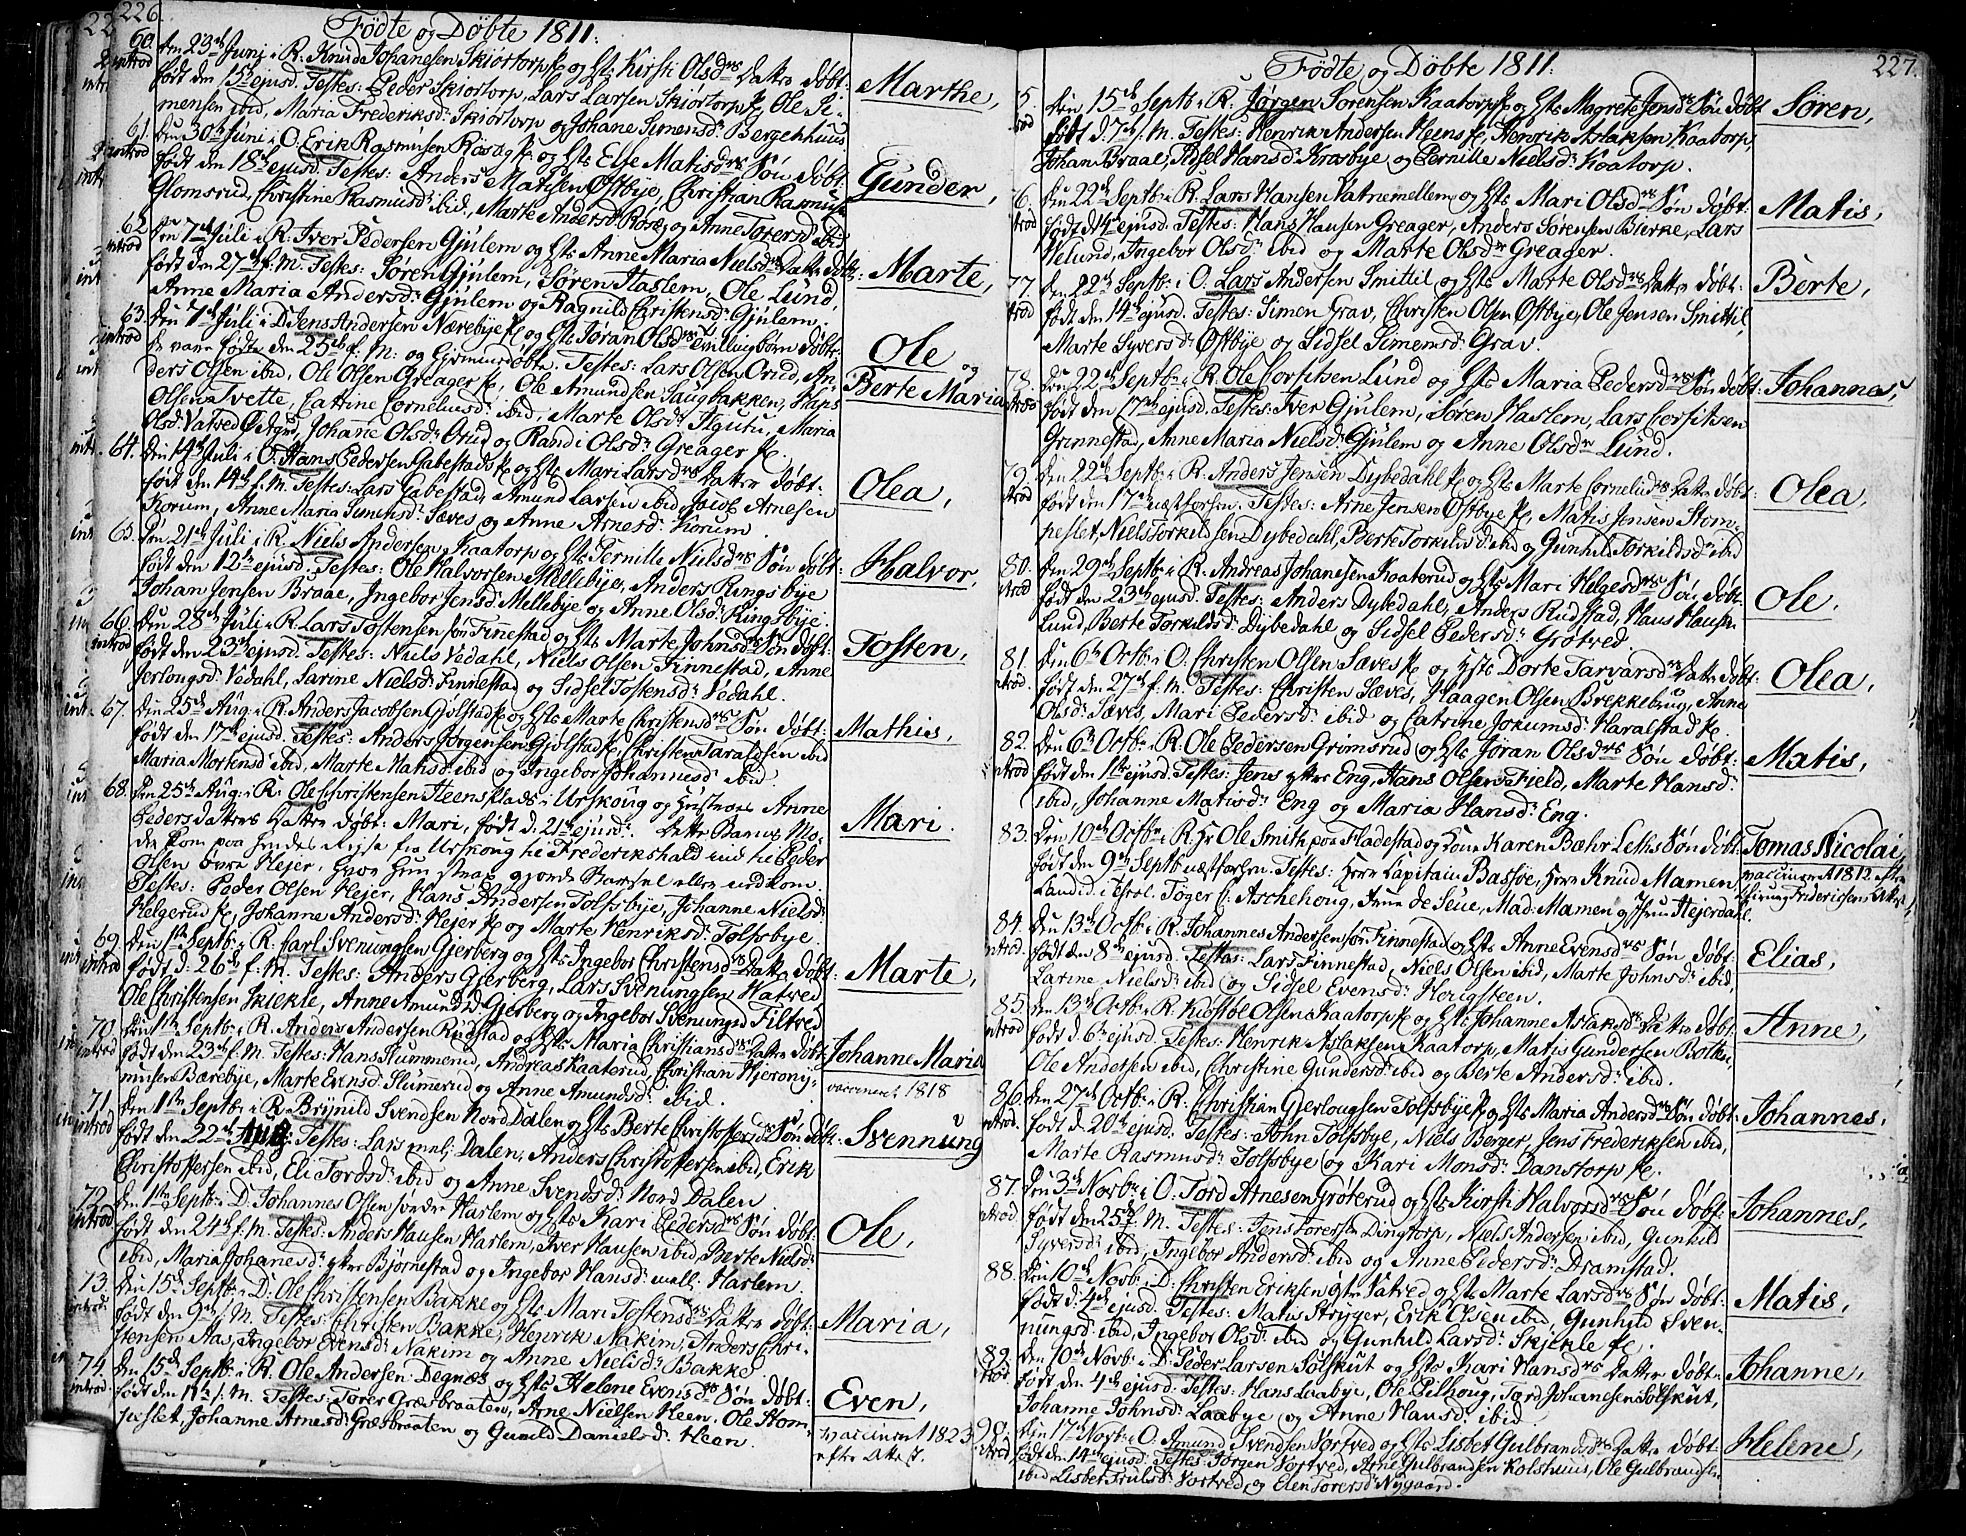 226.
Fødte og Døbte 1811.
60. den 23de Junj i R. Knud Johanesen Skiortorp  og Hst: Kirsti Olsdrs Datter døbt:
introd født den 15de ejusd. Testes: Peder Skiortorp, Lars Larsen Skiortorp  Ole Si-
mensen ibid, Maria Frederiksdr Skiortorp og Johane Simensdr
Marthe,
61. den 30te Juni i O. Erik Rasmusen Rosæg  og Hst: Else Matisdrs Søn døbt:
introd født den 18de ejusd. Testes: Anders Matisen Østbye, Christian Rasmus
Glomsrud, Christine Rasmusdr ibid, Marte Andersdr Rosæg og Anne Toresdr ibid
Gunder,
62. den 7de Juli i R. Iver Pedersen Gjulem og Hst: Anne Maria Nielsdrs Datter døbt:
introd født den 27de f. M. Testes: Søren Gjulem, Søren Haslem, Ole Lund,
Anne Maria Andersdr Gjulem og Ragnild Christensdr Gjulem.
Marte,
63. den 7de Juli i D. Jens Andersen Nærebye  og Hst: Jøran Olsdrs Tvillingbørn døbte
introd de vare fødte den 25de f. M: og hjemmedøbte. Testes: Lars Olsen Orud, An-
ders Olsen ibid, Ole Olsen Greager  Ole Amundsen Haugbakken, Hans
Olsen Tvette, Catrine Cornelius dr ibid, Marte Olsdr  Maria
Olsdr Vatved  Johanne Olsdr Orud og Randi Olsdr Greager
Ole og
Berte Maria
64. den 14de Juli i O. Hans Pedersen Gabestad  og Hst: Mari Larsdrs Datter døbt:
født den 14de f. M. Testes: Lars Gabestad, Amund Larsen ibid, Jacob Arnesen
Korum, Anne Maria Simensdr Sæves og Anne Arnesdr Korum
Olea,
65. Den 21de Juli i R. Niels Andersen Kaatorp og Hst: Pernille Nielsdrs Søn døbt:
født den 12te ejusd. Testes: Ole Halvorsen Mellebye, Anders Ringsbye
Johan Jensen Braae, Ingebor Jensdr Mellebye og Anne Olsdr Ringsbye.
Halvor,
66. Den 28de Juli i R. Lars Tostensen søn Finnestad og Hst: Marte Johnsdrs Søn døbt:
introd født den 23de ejusd. Testes: Niels Vedahl, Niels Olsen Finnestad, Anne
Jerlongsdr Vedahl, Larine Nielsdr Finnestad og Sidsel Tostensdr Vedahl.
Tosten,
67. den 25de Aug: i R. Anders Jacobsen Gjølstad  og Hst: Marte Christensdrs Søn døbt:
født den 17de ejusd. Testes: Anders Jørgensen Gjølstad  Christen Taraldsen ibid
Maria Mortensdr ibid, Marte Matisdr ibid og Ingebor Johannesdr ibid.
Mathis,
68. den 25de Aug: i R. Ole Christensen Steens plads i Urskoug og Hustrue Anne
Pedersdatters Datter døbt: Mari, født d. 21de ejusd. Dette Barns Mo-
der kom paa hendes Reyse fra Urskoug til Frederikshald ind til Peder
Olsen øvre Hejer, hvor hun strax gjorde Barsel efter
Testes: Peder Olsen Hejer, Hans Andersen Tolfsbye, Johanne Niels dr
Helgerud  Johanne Andersdr Hejer  og Marte Henriksdr Tolfsbye.
Mari.
69. den 1ste Septbr i R. Carl Svenungsen Gjerberg og Hst: Ingebor Christensdrs Datter døbt:
introd født d: 26de f. M. Testes: Anders Gjerberg, Lars Svenungsen Watved
Ole Christensen Skiekle, Anne Amundsd. Gjerberg og Ingebor Svenungsd Filtved
Marte,
70. den 1ste Septbr i R. Anders Andersen Rudstad og Hst: Maria Christiansdrs Datter døbt
introd født den 23de f. M. Testes: Hans Slummerud, Andreas Kaaterud, Christian Hjeronij-
musen Bærebye, Marte Evensdr Slumerud og Anne Amundsdr ibid.
Johanne Maria
vaccineret 1818
71. den 1ste Septbr i R. Brynild Svendsen Nord Dalen og Hst: Berte Christophersdrs Søn døbt
introd født den 22de Aug: Testes: Lars mel: Dalen, Anders Christophersen ibid, Erik
Christophersen ibid, Eli Tordsdr ibid og Anne Svendsdr Nord Dalen.
Svennung
72. den 1ste Septbr i D. Johannes Olsen søndre Harlem og Hst: Kari Pedersdrs Søn døbt:
introd født den 24de f. M. Testes: Anders Hansen Harlem, Iver Hansen ibid, Berte Nielsdr
ibid, Maria Johanesdr ytre Bjørnestad og Ingebor Hansdr mell: Harlem.
Ole,
73. den 15de Septbr i D. Ole Christensen Bakke og Hst: Mari Tostensdrs Datter døbt:
introd. født den 9de f. M. Testes: Christen Bakke, Henrik Nakim, Anders Chri-
stensen Aas, Ingebor Evensdr Nakim og Anne Nielsdr Bakke
Maria,
74. den 15de Septbr i R. Ole Andersen Degnæs og Hst: Helene Evensdrs Søn døbt:
introd. født den 11te f. M. Testes: Torer Græsbraaten, Arne Nielsen Heen, Ole Stom-
peslet, Johanne Arnesdr Græsbraaten og Gunild Danielsdr Heen.
Even,
vaccineret 1823
efter Attest.
227.
Fødte og Døbte 1811.
75. Den 15de Septbr i R. Jørgen Sørensen Kaatorp  og Hst: Magrete Jensdrs Søn døbt
introd født d. 7de f. M. Testes: Henrik Andersen Heens  Henrik Aslaksen Kaatorp,
Johan Braae, Sidsel Hansdr Krosbye og Pernille Nielsdr Kaatorp.
Søren,
76. den 22de Septbr i R. Lars Hansen Vatnemellem og Hst: Mari Olsdrs Søn døbt:
introd født d. 14de ejusd. Testes: Hans Hansen Greager, Anders Sørensen Bierke, Lars
Velund, Ingebor Olsdr ibid og Marte Olsdr Greager.
Matis,
77. den 22de Septbr i O. Lars Andersen Smittil og Hst: Marte Olsdrs Datter døbt:
introd født den 14de ejusd. Testes: Simen Grav, Christen Olsen Østbye, Ole Jensen Smittil,
Marte Syversdr Østbye og Sidsel Simensdr Grav.
Berte,
78. den 22de Septbr i R. Ole Corfitsen Lund og Hst: Maria Pedersdrs Søn døbt:
introd født den 17de ejusd. Testes: Iver Gjulem, Søren Haslem, Lars Corfitsen
Grinnestad, Anne Maria Nielsdr Gjulem og Anne Olsdr Lund.
Johannes,
79. den 22de Septbr i R. Anders Jensen Dybedahl  og Hst: Marte Cornelius drs Datter døbt:
introd født den 17de næstforhen. Testes: Arne Jensen Østbye  Matis Jensen Stom-
peslet, Niels Torkildsen Dybedahl, Berte Torkilsdr ibid og Gunhil Torkildsdr ibid
Olea,
80. den 29de Septbr i R. Andreas Johanesen Kaaterud og Hst: Mari Helgesdrs Søn, døbt.
introd født den 23de ejusd. Testes: Anders Dybedahl, Anders Rudstad, Hans Hansen
Lund, Berte Torkildsdr Dybedahl og Sidsel Pedersdr Grøtved.
Ole.
81. den 6te Octbr i O. Christen Olsen Sæves  og Hst: Dorte Tarvarsdrs Datter døbt:
introd. født den 27de f. M. Testes: Christen Sæves, Haagen Olsen Brekkebug, Anne
Olsdr Sæves, Mari Pedersdr ibid og Catrine Jokumsdr Haralstad
Olea,
82. den 6te Octbr i R. Ole Pedersen Grimsrud og Hst: Jøran Olsdrs Søn døbt:
introd født den 1ste ejusd. Testes: Jens ytre Eng, Hans Olsen Field, Marte Hansdr
ibid, Johanne Matisdr Eng og Maria Hansdr Eng.
Matis,
83. den 10de Octbr i R. Hr Ole Smith paa Fladestad og Kone Karen Bæhr Leths Søn døbt
født den 9de Septb næstforhen. Testes: Herr Kapitain Bassøe, Herr Knud Mamen,
Landid. i Tistol. Toger C: Aschehoug, Frue de Seue, Mad: Mamen og Jfru Hejerdahl
Tomas Nicolai
vaccineret 1812 efter
Chirurg Friderichsens Attest
84. den 13de Octbr i R. Johannes Andersen søn Finnestad og Hst: Anne Evensdrs Søn døbt
introd. født den 8de ejusd. Testes: Lars Finnestad, Niels Olsen ibid, Marte Johnsdr ibid,
Larine Nielsdr ibid og Sidsel Evensdr Hougsteen.
Elias,
85. den 13de Octbr i R. Kidstøl Olsen Kaatorp  og Hst: Johanne Aslaksdrs Datter døbt
introd født d. 6te ejusd. Testes: Henrik Aslaksen Kaatorp, Matis Gundersen Botten
Ole Andersen ibid, Christine Gundersdr ibid og Berte Andersdr ibid.
Anne,
86. den 27de Octbr i R. Christian Gjerlougsen Tolfsbye  og Hst: Maria Andersdrs Søn døbt
introd. født d. 20de ejusd. Testes: John Tolfsbye, Niels Berger, Jens Frederiksen ibid,
Marte Rasmusdr Tolfsbye og Kari Monsdr Danstorp
Johannes,
87. den 3de Novbr i O. Tord Arnesen Grøterud og Hst: Kirsti Halvorsdrs Søn døbt:
introd født den 25de f. M. Testes: Jens Torersen Dingtorp, Niels Andersen ibid, Gunhild
Syversdr ibid, Ingebor Andersdr ibid og Anne Pedersdr Dramstad.
Johannes,
88. den 10de Novbr i D. Christen Eriksen østre Vatved og Hst: Marte Larsdrs Søn døbt:
født d. 4de ejusd. Testes: Matis Stryger, Erik Olsen ibid, Gunhild Sven-
nungsdr ibid, Ingebor Olsdr ibid og Gunhild Larsdr Skjekle
Matis,
89. den 10de Novbr i D. Peder Larsen Sølskut og Hst: Kari Hansdrs Datter døbt:
introd født den 4de ejusd. Testes: Hans Laabye, Ole Pilhoug, Tord Johannesen Sølskut,
Johanne Johnsdr Laabye og Anne Hansdr ibid.
Johanne,
90. den 17de Novbr i O. Amund Svendsen Vortved og Hst: Lisbet Gulbrandsdrs Datter døbt:
introd født den 14de ejusd. Testes: Jørgen Vortved, Arne Gulbrandsen Kolshuus, Ole Gulbrandsen
ibid Lisbet Trulsdr Vortved, og Elen Torersdr Nygaard.
Helene,